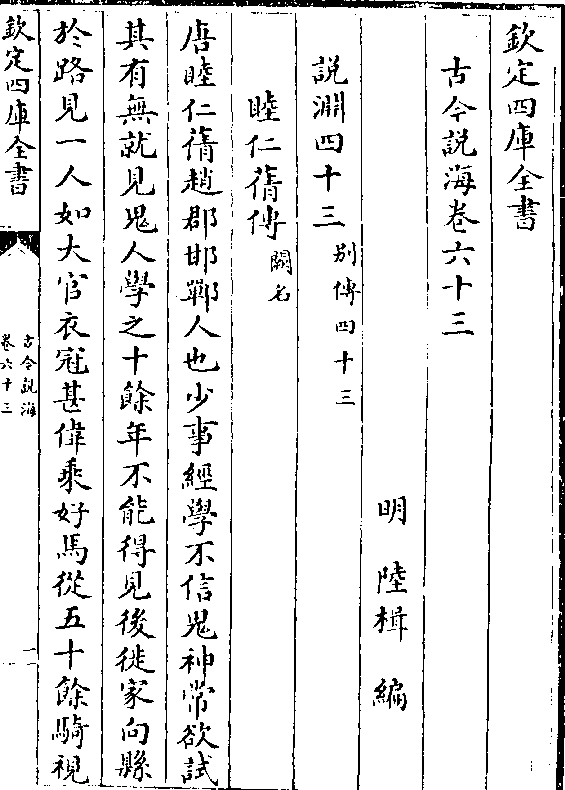 欽定四庫全書
古今說海卷六十三
明 陸楫 編
說淵四十三 别傳四十三
睦仁蒨傳 闕名
唐睦仁蒨趙郡邯鄲人也少事經學不信鬼神常欲試
其有無就見鬼人學之十餘年不能得見後徙家向縣
於路見一人如大官衣冠甚偉乘好馬從五十餘騎視
欽定四庫全書
古今說海
卷六十三
一